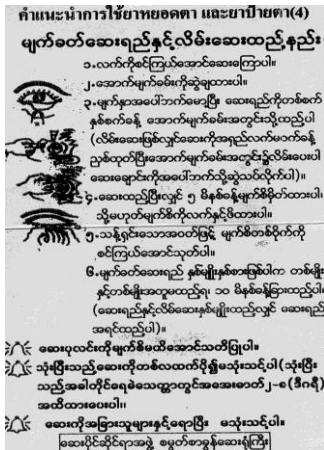 คำแนะนำการใช้ยาหยอดตา และยาป้ายตา(4)
မျက်ခတ်ဆေးရည်နှင့်လိမ်းဆေးထည့်နည်း
၁.လက်ကိုစင်ကြယ်အောင်ဆေးကြောပါ။
၂.အောက်မျက်ခမ်းကိုဆွဲချထားပါ။
၃.မျက်နှာအပေါ်ဘက်မော့ပြီး ဆေးရည်ကိုတစ်စက်
နှစ်စက်ခန့် အောက်မျက်ခမ်းအတွင်းသို့ထည့်ပါ
(လိမ်းဆေးဖြစ်လျှင်ဆေးကိုအရှည်လက်မဝက်ခန့်
ညှစ်ထုတ်ပြီးအောက်မျက်ခမ်းအတွင်း၌လိမ်းပေးပါ
ဆေးချောင်းကိုအပေါ်ဘက်သို့ဆွဲသပ်လိုက်ပါ)။
၄.ဆေးထည့်ပြီးလျှင် ၅ မိနစ်ခန့်မျက်စိမှိတ်ထားပါ။
သို့မဟုတ်မျက်စိကိုလက်နှင့်ဖိထားပါ။
၅.သန့်ရှင်းသောအဝတ်ဖြင့် မျက်စိတစ်ဝိုက်ကို
စင်ကြယ်အောင်သုတ်ပါ။
၆.မျက်ခတ်ဆေးရည် နှစ်မျိုးနှစ်စားဖြစ်ပါက တစ်မျိုး
နှင့်တစ်မျိုးအတူမထည့်ရ၊ ၁၀ မိနစ်ခန့်ခြားထည့်ပါ။
(ဆေးရည်နှင့်လိမ်းဆေးနှစ်မျိုးထည့်လျှင် ဆေးရည်
အရင်ထည့်ပါ)။
ဆေးပုလင်းကိုမျက်စိမထိအောင်သတိပြုပါ။
သုံးပြီးသည့်ဆေးကိုတစ်လထက်ပို၍မသုံးသင့်ပါ(သုံးပြီး
သည့်အခါတိုင်းရေခဲသေတ္တာတွင်အအေးဓာတ်၂-၈(ဒီဂရီ)
အထိထားပေးပါ။
ဆေးကိုအခြားသူများနှင့်ရောပြီး မသုံးသင့်ပါ။
ဆေးပိုင်ဆိုင်ရာအဖွဲ့ စမွတ်စာခွန်ဆေးရုံကြီး